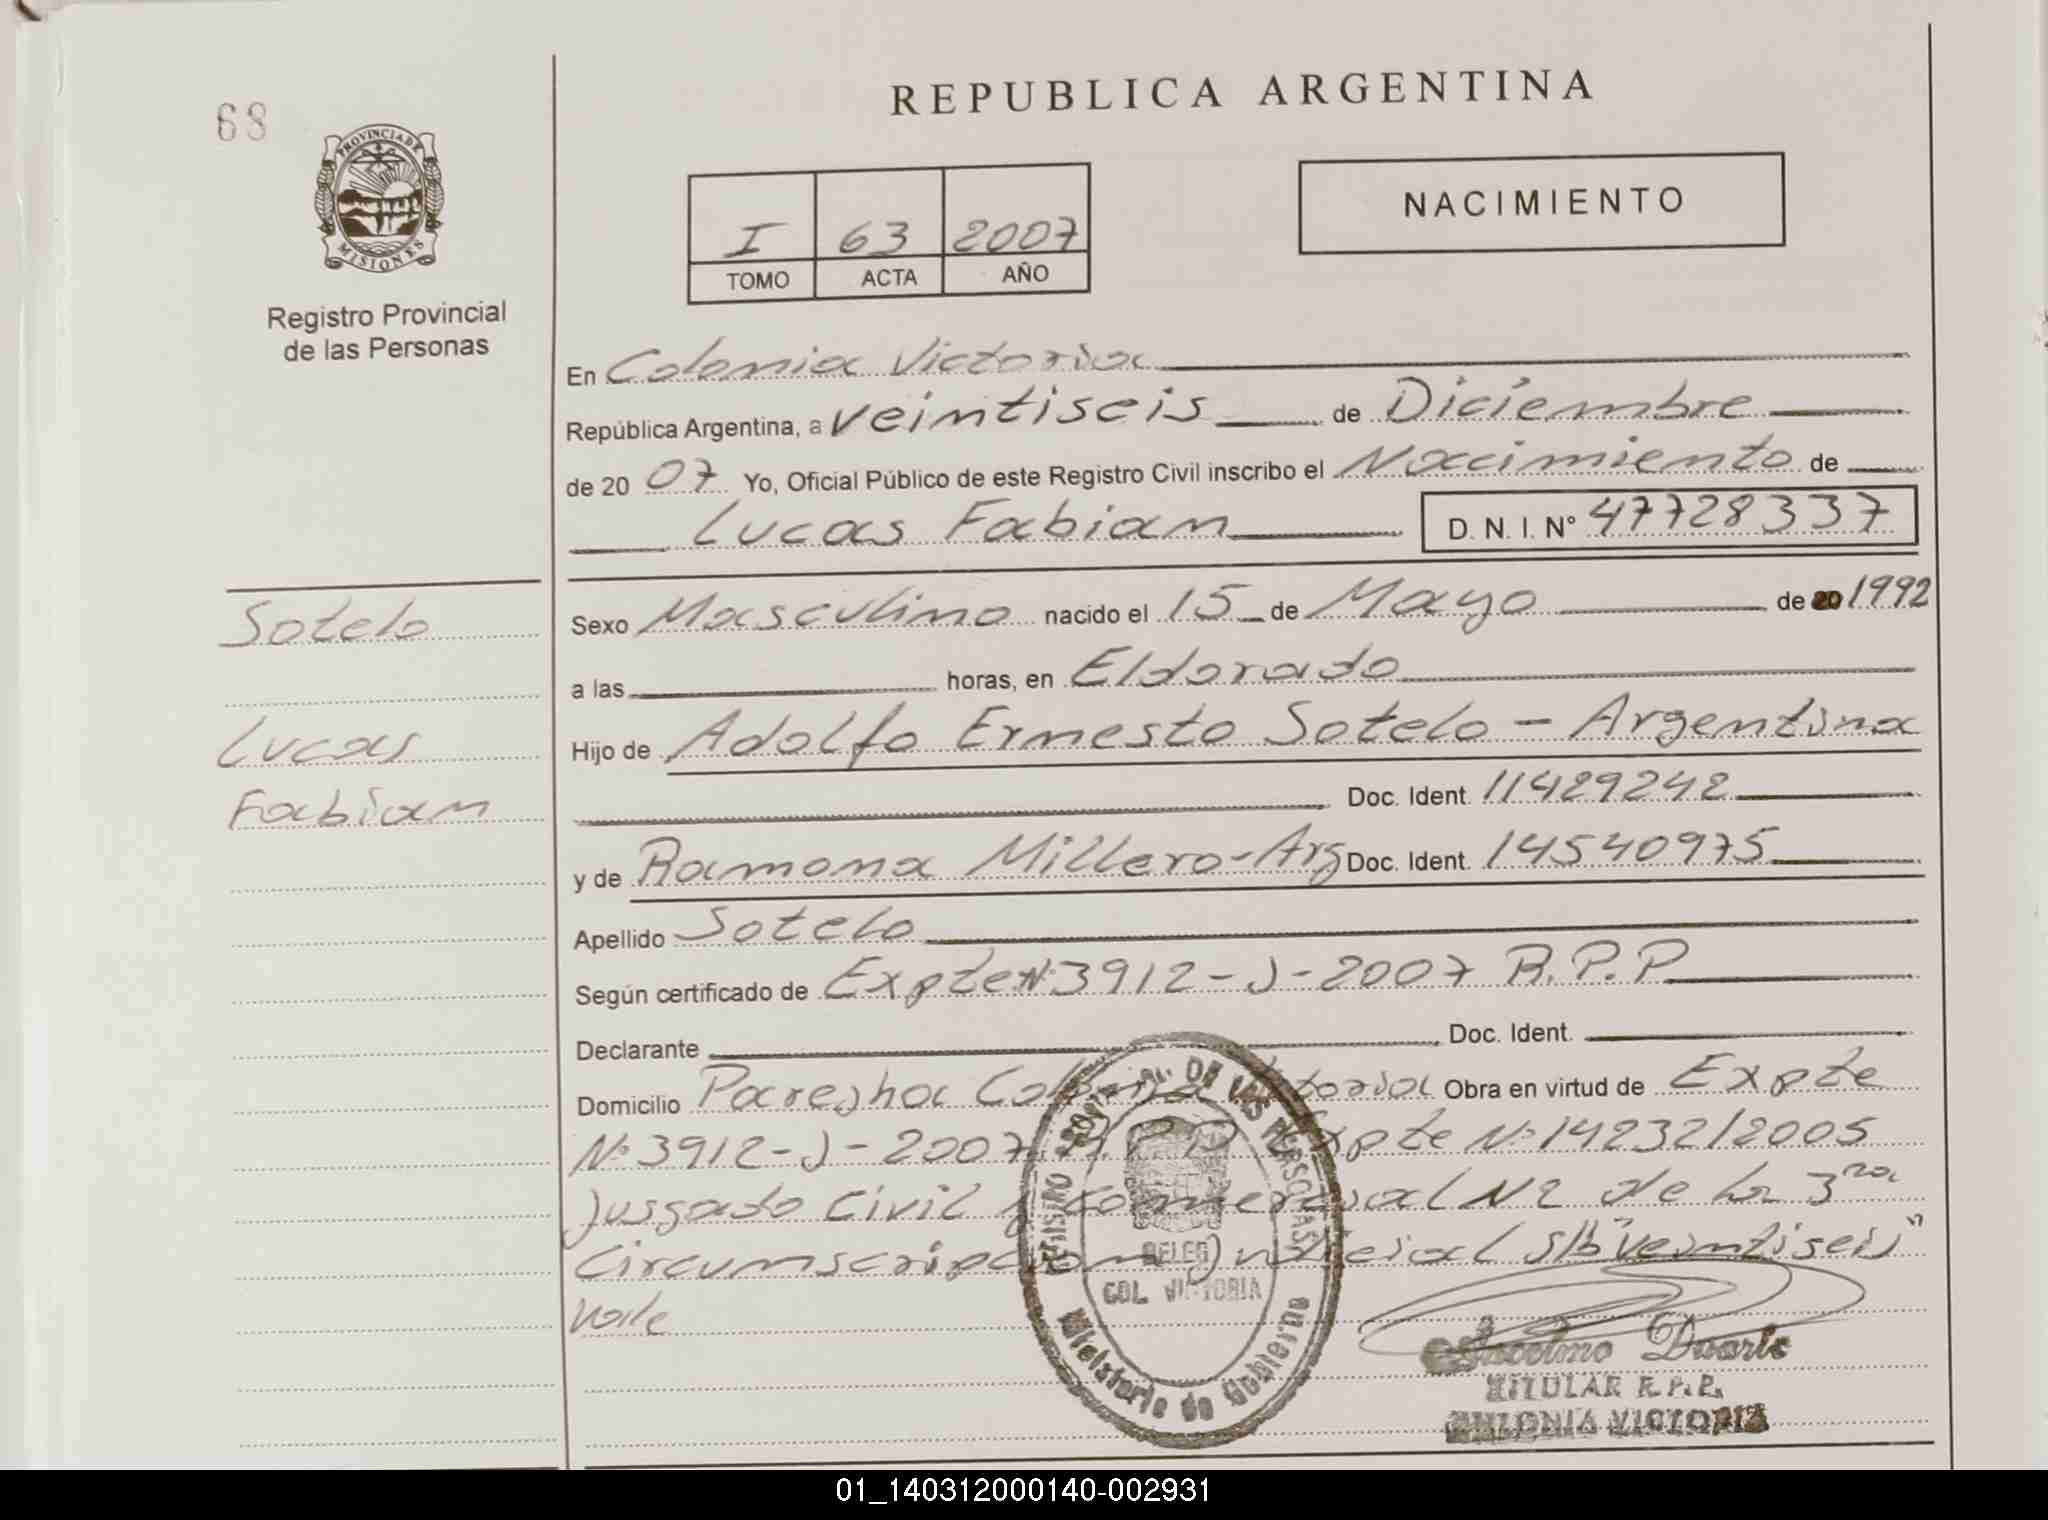 68
REPUBLICA ARGENTINA
PROVINCIA DE MISIONES
Registro Provincial
de las Personas
I 63 2007
TOMO ACTA AÑO
NACIMIENTO
En Colonia Victoria
República Argentina, a veintiseis de Diciembre
de 20 07 Yo, Oficial Público de este Registro Civil inscribo el Nacimiento de
Lucas Fabian D. N. I. N° 47728337
Sotelo
Lucas
Fabian
Sexo Masculino nacido el 15 de Mayo de 20 1992
a las horas, en Eldorado
Hijo de Adolfo Ernesto Sotelo - Argentina
Doc. Ident. 11429242
y de Ramona Millero - Arg Doc. Ident. 14540975
Apellido Sotelo
Según certificado de Expte N° 3912-J-2007 R.P.P
Declarante Doc. Ident.
Domicilio Pareja Colonia Victoria Obra en virtud de Expte
N° 3912-J-2007 R.P.P Expte N° 14232/2005
Juzgado Civil y Comercial N2 de la 3ra
Circunscripcion Judicial S/b "veintiseis"
Vale
REGISTRO PROVINCIAL DE LAS PERSONAS
DELEG
COL. VICTORIA
Ministerio de Gobierno
Duarte
TITULAR R.P.P.
COLONIA VICTORIA
01_140312000140-002931